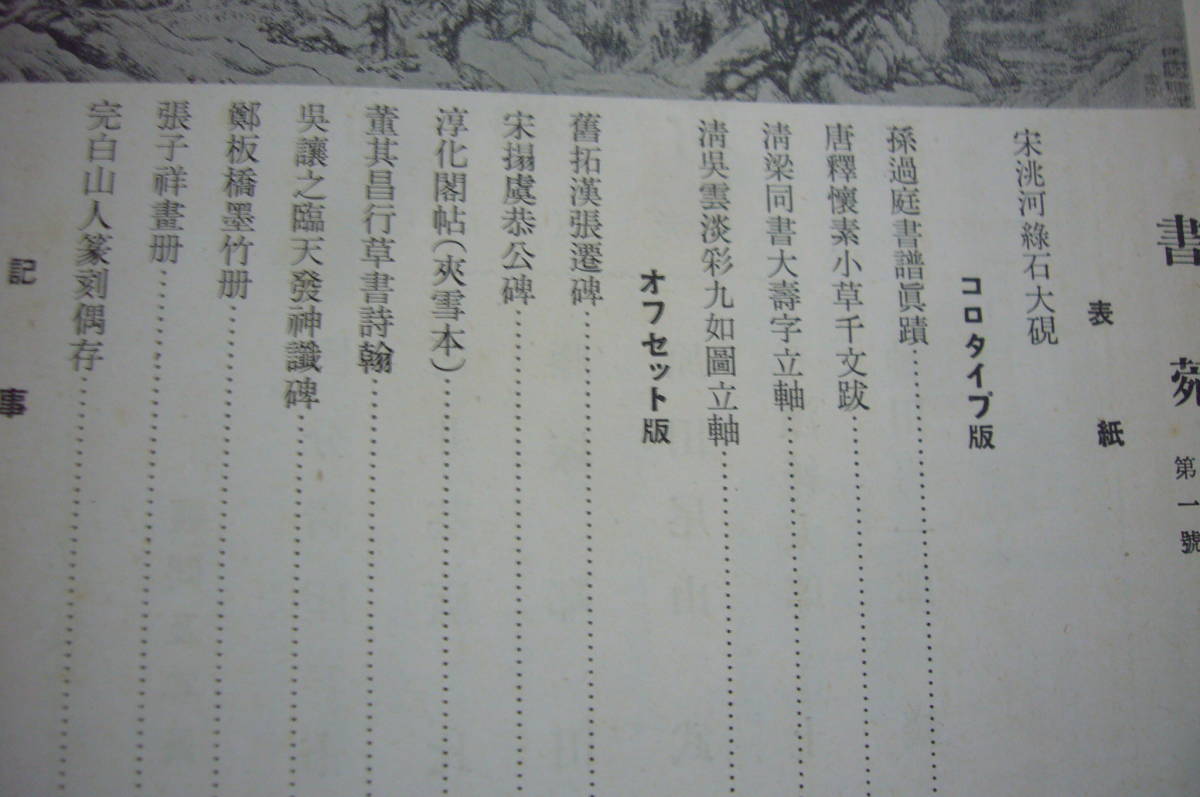 書苑 第一號
表紙
宋洮河綠石大硯
コロタイプ版
孫過庭書譜眞蹟
唐釋懷素小草千文跋
淸梁同書大壽字立軸
淸吳雲淡彩九如圖立軸
オフセット版
舊拓漢張遷碑
宋搨虞恭公碑
淳化閣帖(夾雪本)
董其昌行草書詩翰
吳讓之臨天發神讖碑
鄭板橋墨竹册
張子祥畫册
完白山人篆刻偶存
記事